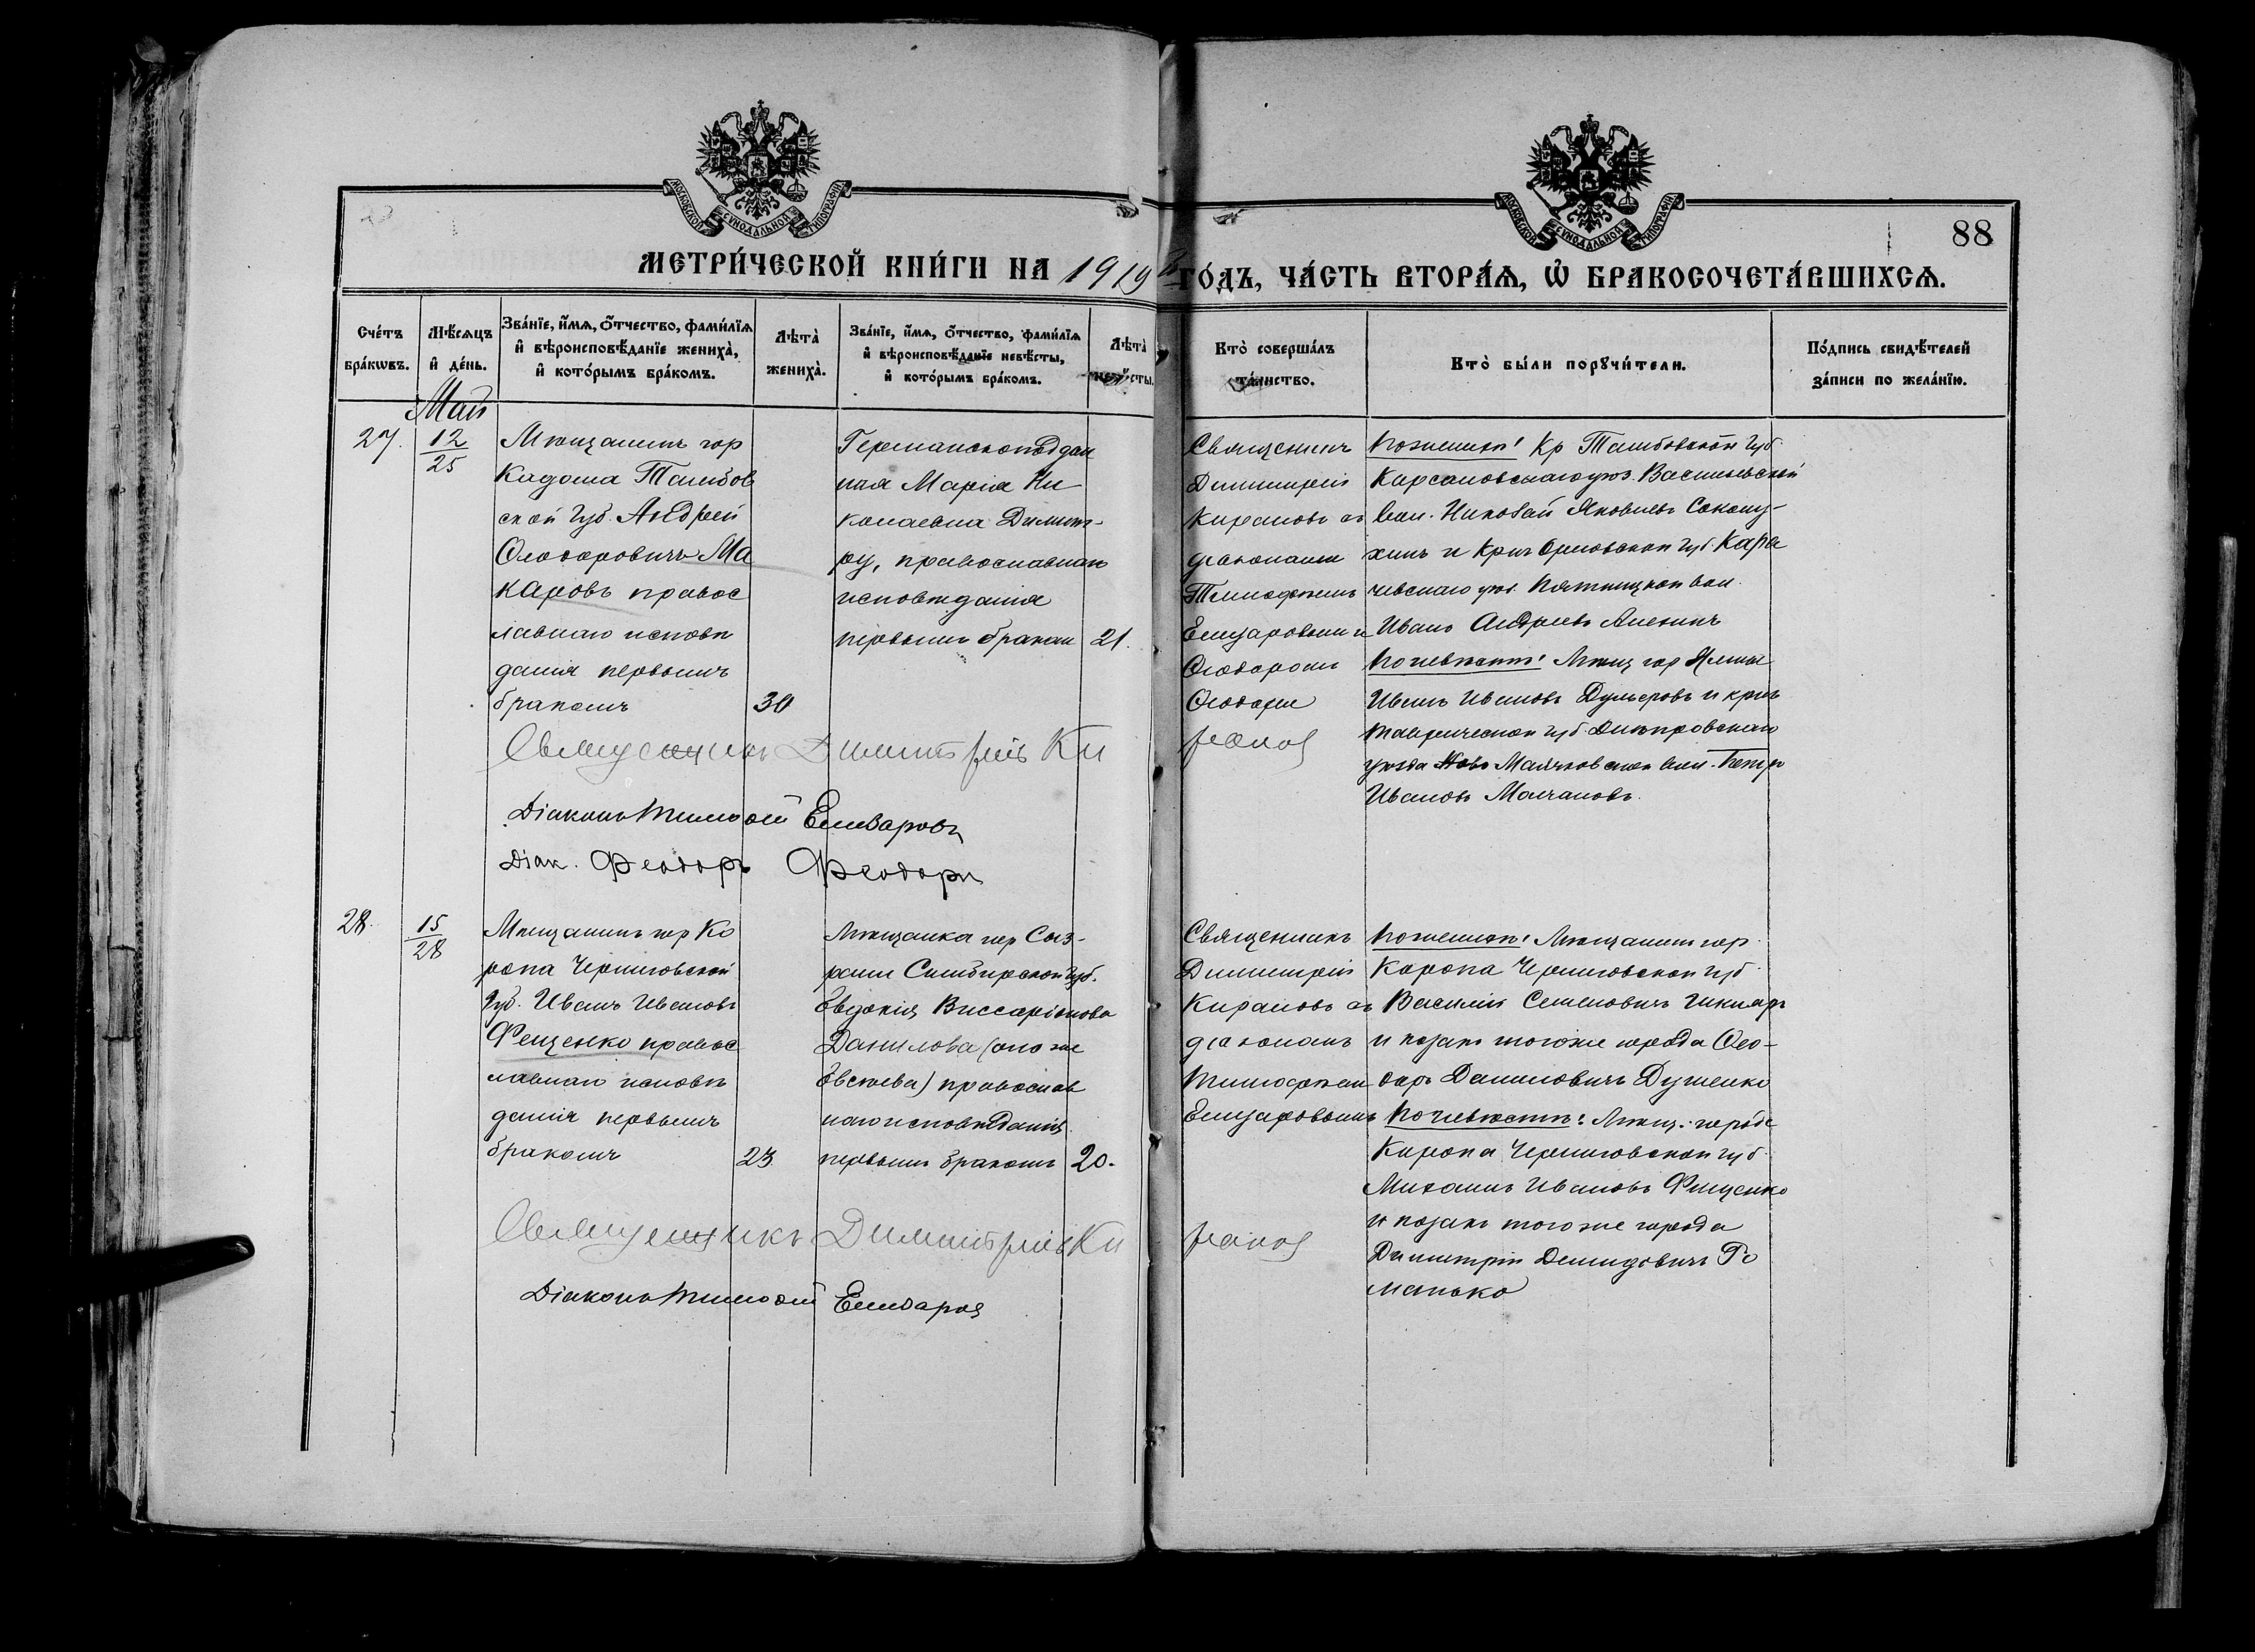 МОСКОВСКОЙ СѴНОДАЛЬНОЙ ТИПОГРАФІИ
МОСКОВСКОЙ СѴНОДАЛЬНОЙ ТИПОГРАФІИ
88
МЕТРИ́ЧЕСКОЙ КНИ́ГИ НА 1919 ГО́ДЪ, ЧА́СТЬ ВТОРА́Ѧ, Ѽ БРАКОСОЧЕТА́ВШИХСѦ.
Сче́тъ бра́кѡвъ.
Мѣ́сѧцъ и҆ де́нь.
Зва́нїе, и҆́мѧ, ѻ҆́тчество, фами́лїѧ
и҆ вѣроисповѣ́данїе жениха̀,
и҆ кото́рымъ бра́комъ.
Лѣта̀ жениха̀.
Зва́нїе, и҆́мѧ, ѻ҆́тчество, фами́лїѧ
и҆ вѣроисповѣ́данїе невѣ́сты,
и҆ кото́рымъ бра́комъ.
Лѣта̀ невѣ́сты.
Кто̀ соверша́лъ та́инство.
Кто̀ бы́ли порꙋчи́тели.
По́дпись свидѣ́телей
за́писи по жела́нїю.
Май
27.
12
25
Мѣщанинъ гор
Кадома Тамбов
ской губ. Андрей
Ѳеодоровичъ Ма
каровъ правос
лавнаго исповѣ
данія первымъ
бракомъ
30
Германскоподдан
ная Марія Ни
колаевна Димит-
ру, православнаго
исповѣданія
первымъ бракомъ
21.
Священникъ
Димитрій
Кирановъ съ
діаконами
Тимофеемъ
Елизаровымъ и
Ѳеодоромъ
Ѳеодори
По женихѣ: Кр Тамбовской губ.
Кирсановскаго уѣз. Васильевской
вол. Николай Яковлевъ
хинъ и Кр-нъ Орловской губ. Кара
чевскаго уѣз. Пятницкой вол.
Иванъ Андреевъ Аленинъ
По невѣстѣ: Мѣщ гор Ялты
Иванъ Ивановъ и кр-нъ
Таврической губ. Днѣпровскаго
уѣзда Ново Маячковской вол. Петръ
Ивановъ Молчановъ.
Священникъ Димитрій Ки
рановъ
Діаконъ Тимоѳей Елизаровъ
Діак. Феодоръ Феодори
28.
15
28
Мѣщанинъ гор Ко
ропа Черниговской
губ. Иванъ Ивановъ
Фещенко правос
лавнаго исповѣ
данія первымъ
бракомъ
23.
Мѣщанка гор Сыз-
рани Симбирской губ.
Евдокія Виссаріонова
Данилова (она же
Евсѣева) православ
наго исповѣданія
первымъ бракомъ
20.
Священникъ
Димитрій
Кирановъ съ
діакономъ
Тимофеемъ
Елизаровымъ
По женихѣ: Мѣщанинъ гор.
Коропа Черниговской губ.
Василій Семеновичъ
и козакъ того же города Ѳео-
доръ Даниловичъ Душенко
По невѣстѣ: Мѣщ. города
Коропа Черниговской губ.
Михаилъ Ивановъ Фещенко
и козакъ того же города
Димитрій Демидовичъ Ро
манько
Священникъ Димитрій Ки
рановъ
Діаконъ Тимоѳей Елизаровъ